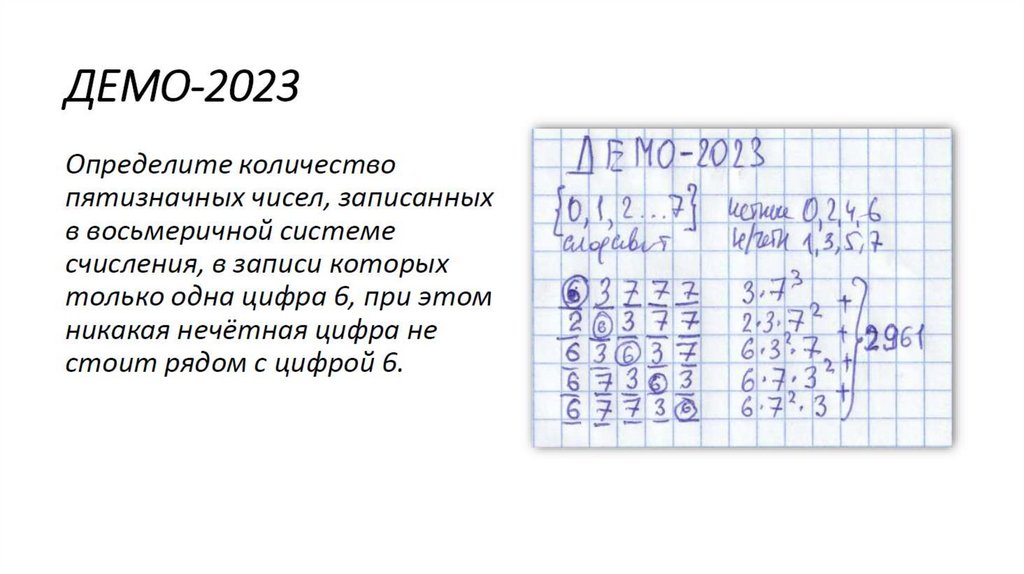 ДЕМО-2023
Определите количество
пятизначных чисел, записанных
в восьмеричной системе
счисления, в записи которых
только одна цифра 6, при этом
никакая нечётная цифра не
стоит рядом с цифрой 6.
ДЕМО-2023
{0,1,2...7} четные 0,2,4,6
алфавит н/четн 1,3,5,7
6 3 7 7 7 3·7³ +
2 6 3 7 7 2·3·7² +
6 3 6 3 7 6·3²·7 +
6 7 3 6 3 6·7·3² +
6 7 7 3 6 6·7²·3
2961